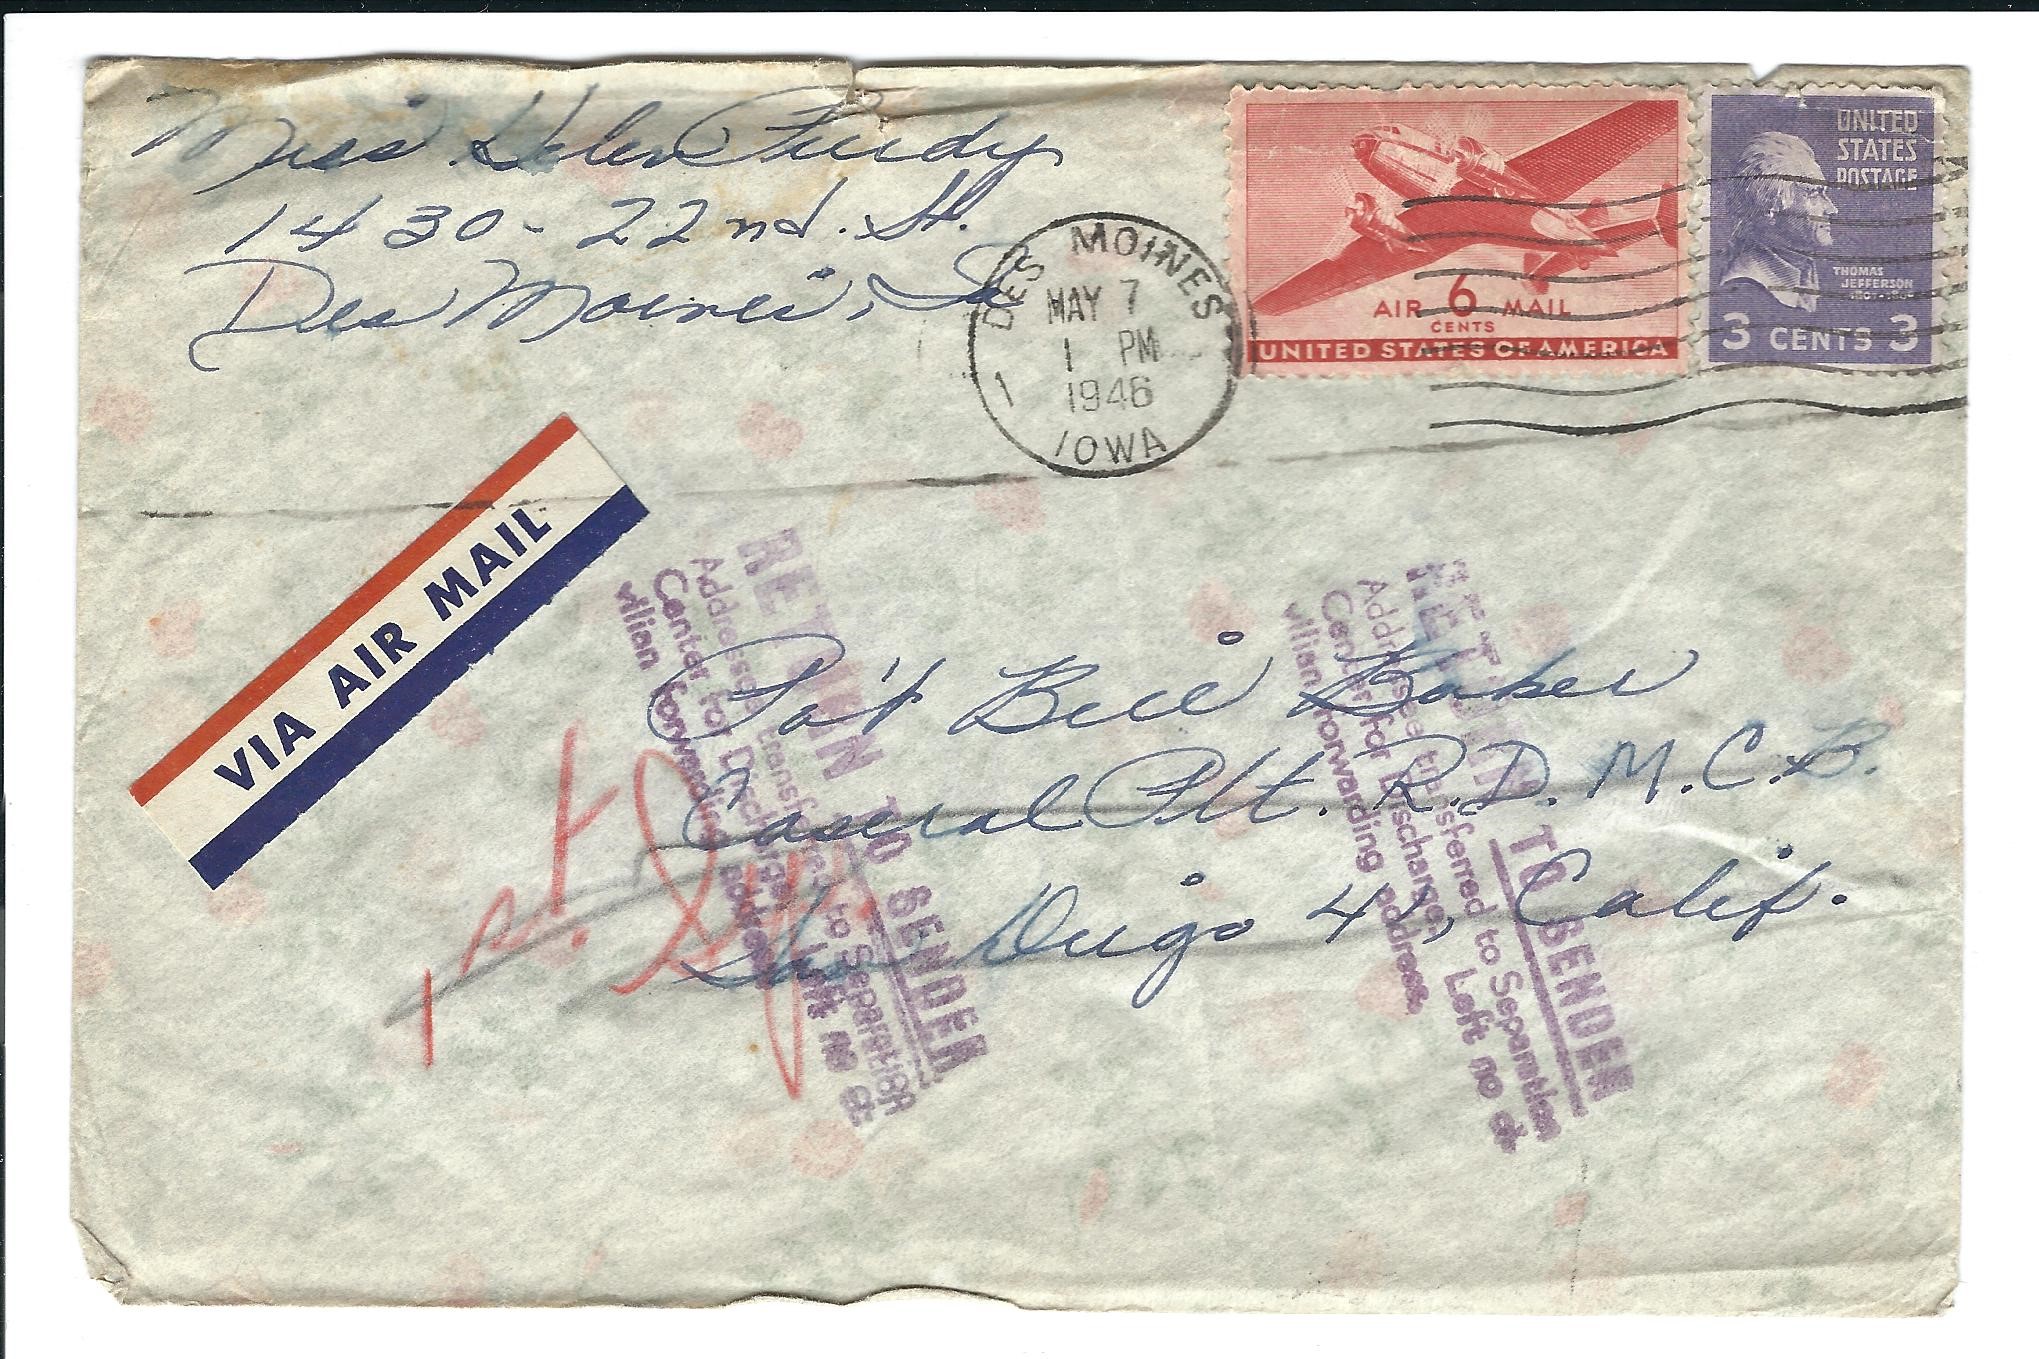 Miss Helen Purdy
1430 - 22nd. St.
Des Moines, Ia.
DES MOINES
MAY 7
1 PM
1946
1
IOWA
AIR 6 MAIL
CENTS
UNITED STATES OF AMERICA
UNITED
STATES
POSTAGE
THOMAS
JEFFERSON
1801-1809
3 CENTS 3
VIA AIR MAIL
Pvt Bill Baker
Casual Plt. R.D. M.C.B.
San Diego 41, Calif.
RETURN TO SENDER
Addressee transferred to Separation
Center for Discharge. Left no ci-
vilian forwarding address.
RETURN TO SENDER
Addressee transferred to Separation
Center for Discharge. Left no ci-
vilian forwarding address.